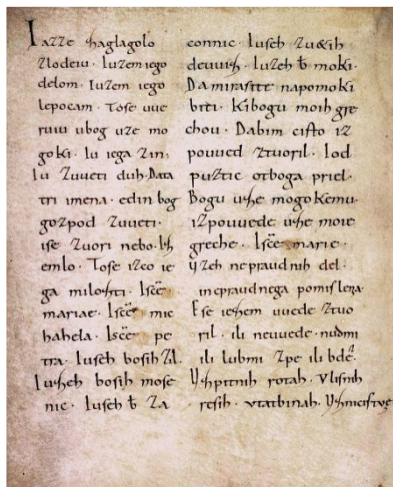 Iazze zaglagolo
zlodeiu. Iuzem iego
delom. Iuzem iego
lepocam. Tose uue
ruiu ubog uze mo
goki. Iu iega zin.
Iu zuueti duh. Data
tri imena. edin bog
gozpod zuueti.
ise zuori nebo. Iz
emlo. Tose izco ie
ga milozti. Isc̄e
mariae. Isc̄e mic
hahela. Isc̄e pe
tra. Iuseh bosih zil.
Iuzeh bosih mose
nic. Iuseh b̄ za
connic. Iuseh zu&ih
deuuiz. Iuzeh b̄ moki.
Da mirasite napomoki
biti. Kibogu moih gre
chou. Dabim cisto iz
pouued ztuoril. Iod
puztic otboga priel.
Bogu uze mogokemu.
izpouuede uze moie
greche. Isc̄e marie.
Uzeh nepraudnih del.
inepraudnega pomislera.
Ese iezem uuede ztuo
ril. ili neuuede. nudmi
ili lubmi zpe ili bde.
Uzpitnih rotah. Vlisnih
resih. Vtatbinah. Uzmicistue